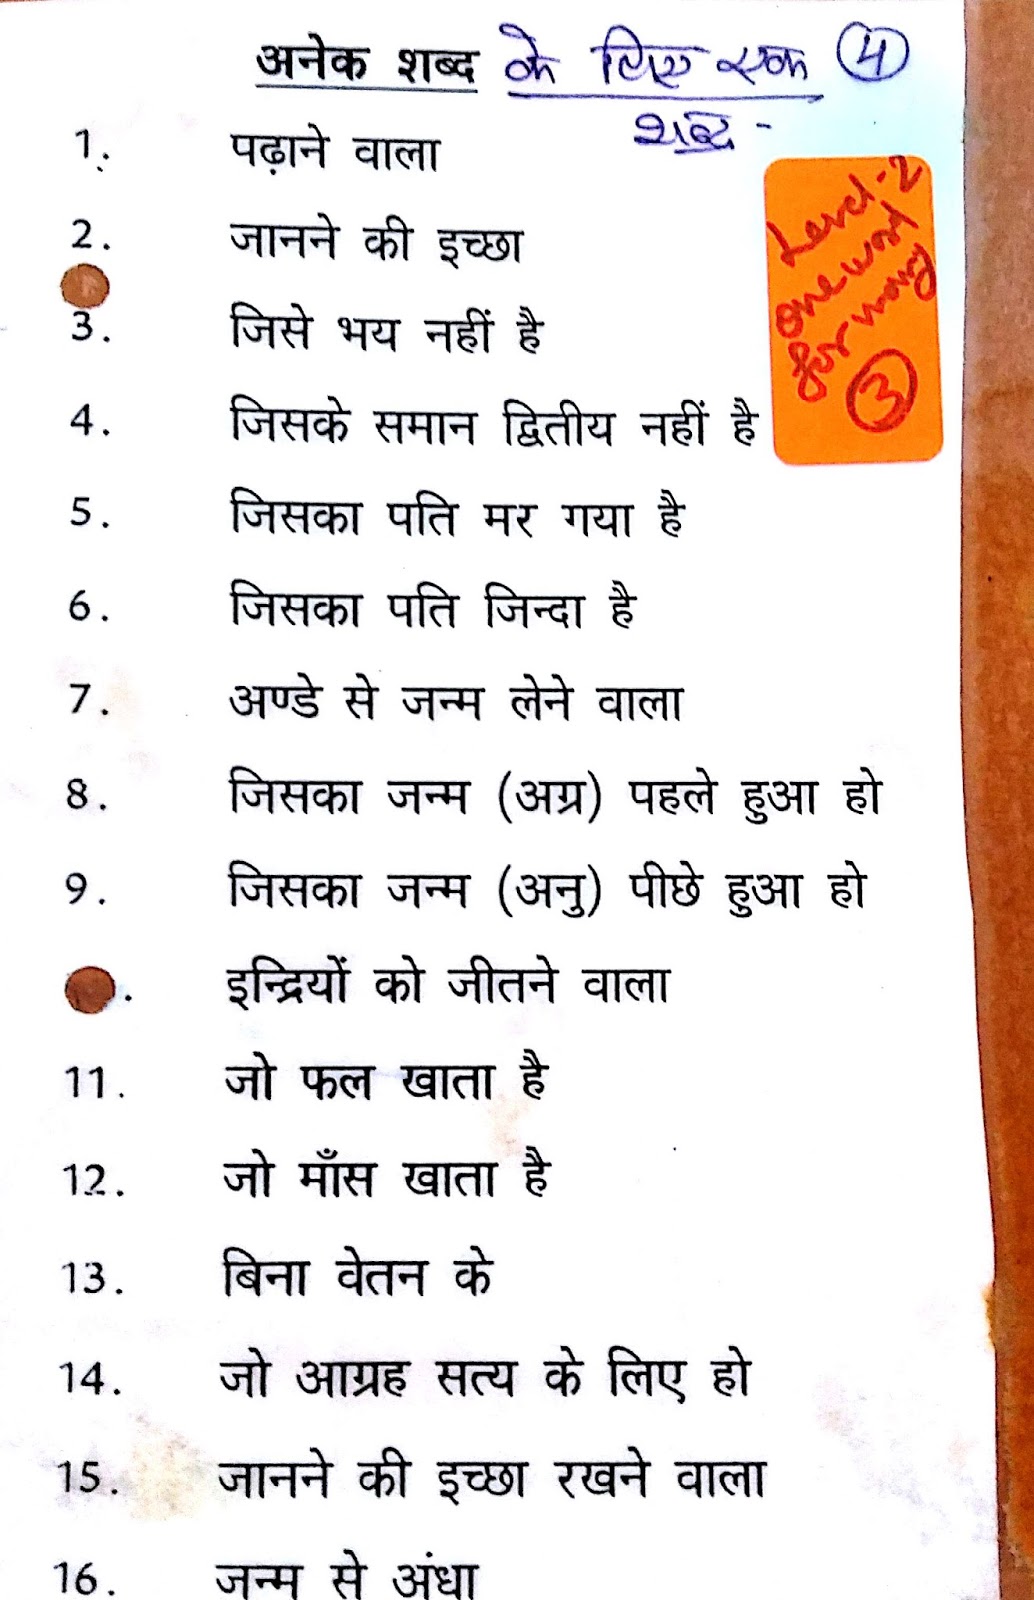 अनेक शब्द के लिए एक ④
शब्द -
1. पढ़ाने वाला
2. जानने की इच्छा
3. जिसे भय नहीं है
4. जिसके समान द्वितीय नहीं है
5. जिसका पति मर गया है
6. जिसका पति जिन्दा है
7. अण्डे से जन्म लेने वाला
8. जिसका जन्म (अग्र) पहले हुआ हो
9. जिसका जन्म (अनु) पीछे हुआ हो
. इन्द्रियों को जीतने वाला
11. जो फल खाता है
12. जो माँस खाता है
13. बिना वेतन के
14. जो आग्रह सत्य के लिए हो
15. जानने की इच्छा रखने वाला
16. जन्म से अंधा
Level-2
one word
for many
③